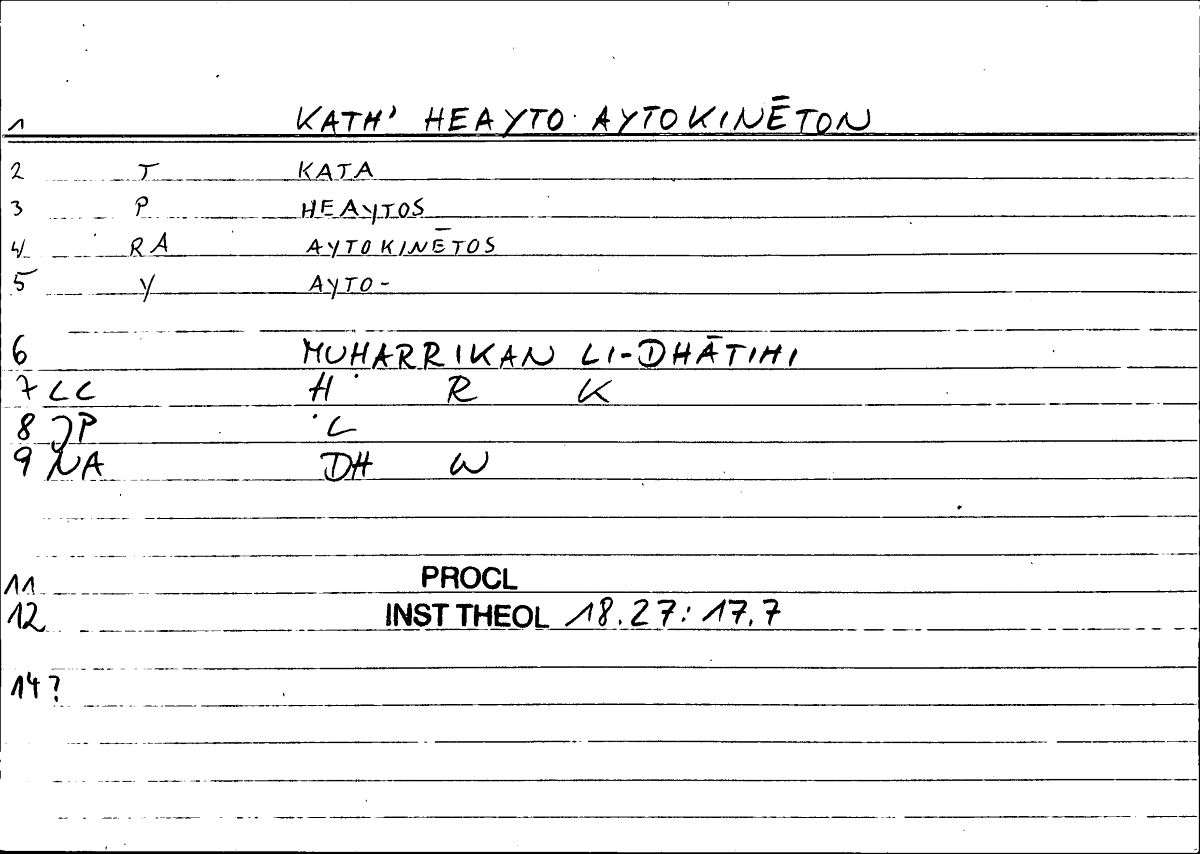 1 KATH' HEAYTO AYTOKINĒTON
2 T KATA
3 P HEAYTOS
4 RA AYTOKINĒTOS
5 Y AYTO-
6 MUḤARRIKAN LI-DHĀTIHI
7 LC Ḥ R K
8 JP L
9 NA DH W
11 PROCL
12 INST THEOL 18.27: 17.7
14 ?